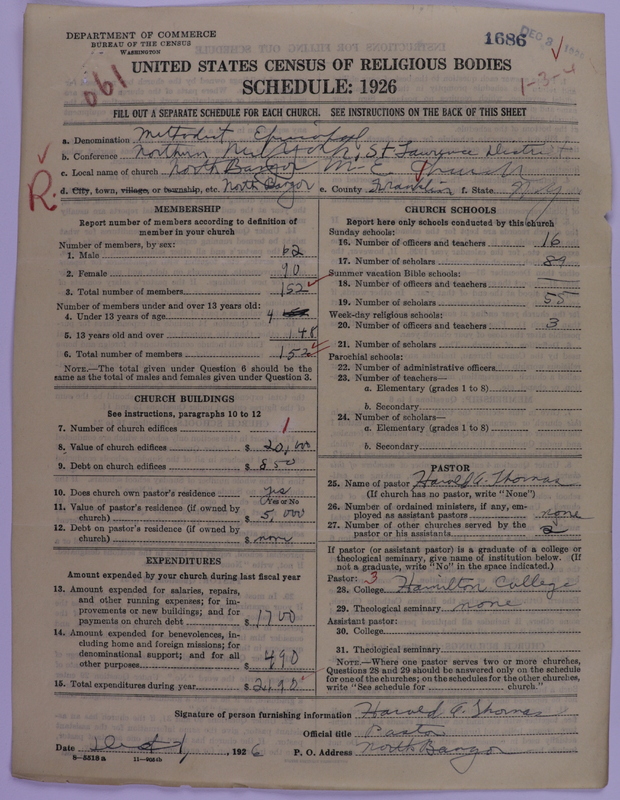 DEPARTMENT OF COMMERCE
BUREAU OF THE CENSUS
WASHINGTON
1686
DEC 8
061
1-3-4
UNITED STATES CENSUS OF RELIGIOUS BODIES
SCHEDULE: 1926
FILL OUT A SEPARATE SCHEDULE FOR EACH CHURCH. SEE INSTRUCTIONS ON THE BACK OF THIS SHEET
a. Denomination Methodist Episcopal
b. Conference Northern New York, St Lawrence District
c. Local name of church North Bangor M E Church
R.
d. City, town, village, or township, etc. North Bangor e. County Franklin f. State N.Y
MEMBERSHIP
Report number of members according to definition of
member in your church
Number of members, by sex:
1. Male 62
2. Female 90
3. Total number of members 152
Number of members under and over 13 years old:
4. Under 13 years of age 4
5. 13 years old and over 148
6. Total number of members 152
NOTE.—The total given under Question 6 should be the
same as the total of males and females given under Question 3.
CHURCH BUILDINGS
See instructions, paragraphs 10 to 12
7. Number of church edifices 1
8. Value of church edifices $ 20,000
9. Debt on church edifices $ 850
10. Does church own pastor's residence yes
(Yes or No
11. Value of pastor's residence (if owned by
church) $ 5,000
12. Debt on pastor's residence (if owned by
church) $ none
EXPENDITURES
Amount expended by your church during last fiscal year
13. Amount expended for salaries, repairs,
and other running expenses; for im-
provements or new buildings; and for
payments on church debt $ 1700
14. Amount expended for benevolences, in-
cluding home and foreign missions; for
denominational support; and for all
other purposes $ 490
15. Total expenditures during year $ 2190
CHURCH SCHOOLS
Report here only schools conducted by this church
Sunday schools:
16. Number of officers and teachers 16
17. Number of scholars 89
Summer vacation Bible schools:
18. Number of officers and teachers
19. Number of scholars 55
Week-day religious schools:
20. Number of officers and teachers 3
21. Number of scholars
Parochial schools:
22. Number of administrative officers
23. Number of teachers—
a. Elementary (grades 1 to 8)
b. Secondary
24. Number of scholars—
a. Elementary (grades 1 to 8)
b. Secondary
PASTOR
25. Name of pastor Harold A. Thomas
(If church has no pastor, write "None")
26. Number of ordained ministers, if any, em-
ployed as assistant pastors none
27. Number of other churches served by the
pastor or his assistants 2
If pastor (or assistant pastor) is a graduate of a college or
theological seminary, give name of institution below. (If
not a graduate, write "No" in the space indicated.)
Pastor: 3
28. College Hamilton College
29. Theological seminary none
Assistant pastor:
30. College
31. Theological seminary
NOTE.—Where one pastor serves two or more churches,
Questions 28 and 29 should be answered only on the schedule
for one of the churches; on the schedules for the other churches,
write "See schedule for church."
Signature of person furnishing information Harold A. Thomas
Official title Pastor
Date , 1926 P. O. Address North Bangor
8—5518a